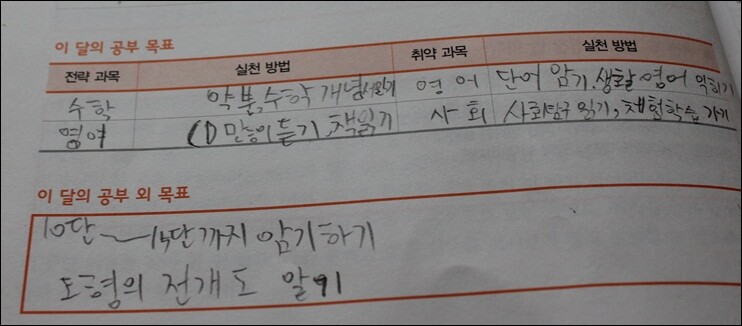 이 달의 공부 목표
전략 과목 실천 방법 취약 과목 실천 방법
수학 약분, 수학 개념 영어 단어 암기, 생활 영어 익히기
영어 CD 많이 듣기, 책읽기 사회 사회탐구 읽기, 체험학습 가기
이 달의 공부 외 목표
10단~15단까지 암기하기
도형의 전개도 알기